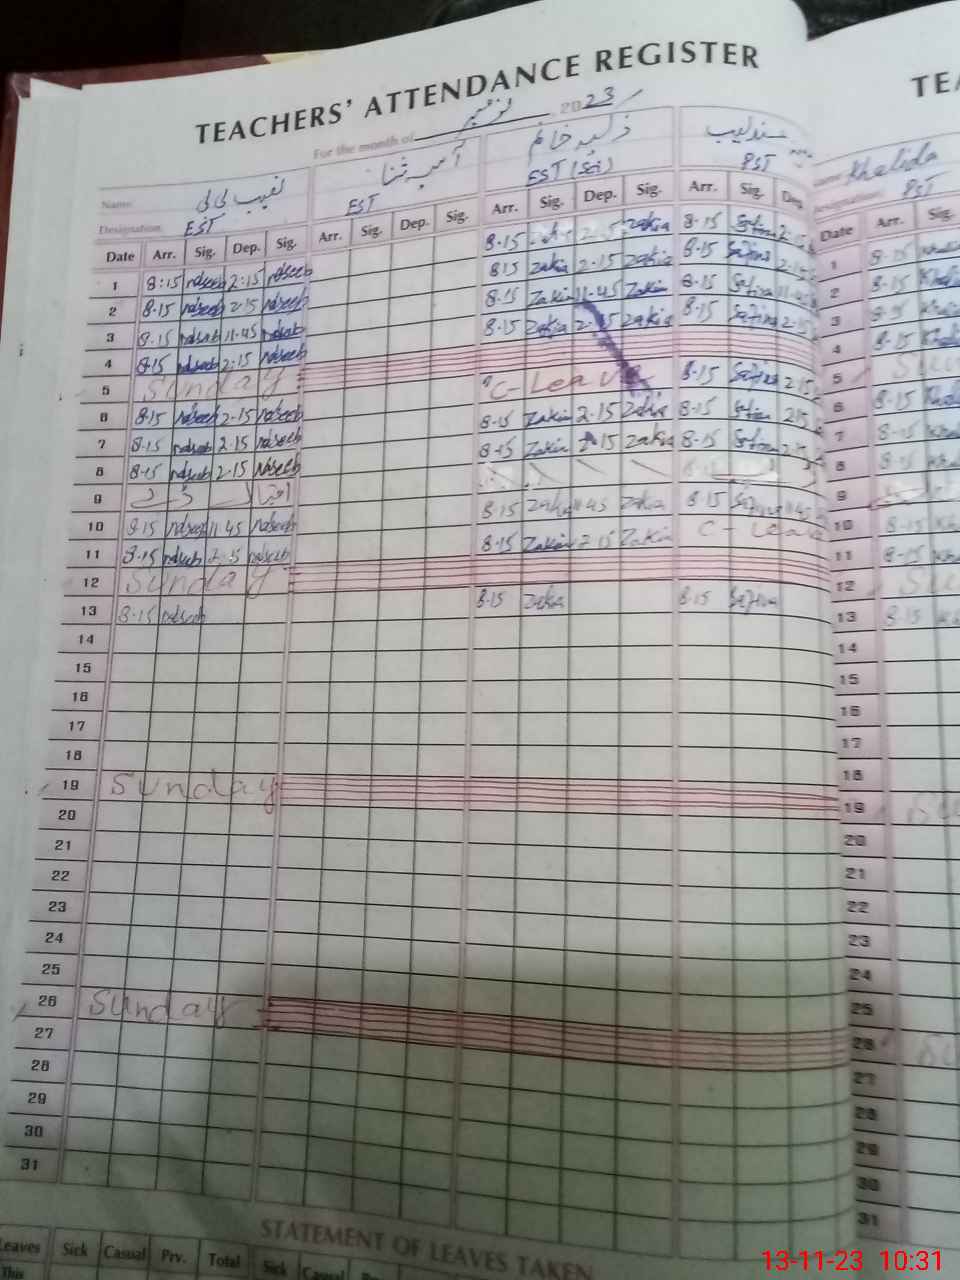 TEACHERS' ATTENDANCE REGISTER
For the month of نومبر 2023
Name: نصیب بی بی آمنہ ثنا ذکیہ خانم Khalida
Designation: EST EST EST (Sci) PST PST
Date Arr. Sig. Dep. Sig. Arr. Sig. Dep. Sig. Arr. Sig. Dep. Sig. Arr. Sig. Dep. Date Arr. Sig.
1 8:15 naseeb 2:15 naseeb 8-15 zakia 8-15 Safina 2-15 1 8-15
2 8-15 naseeb 2-15 naseeb 8-15 zakia 2-15 zakia 8-15 Safina 2-15 2 8-15
3 8-15 naseeb 11-45 naseeb 8-15 zakia 11-45 zakia 8-15 Safina 11-45 3 8-15
4 8-15 naseeb 2-15 naseeb 8-15 zakia 2-15 zakia 8-15 Safina 2-15 4 8-15
5 Sunday 5
6 8-15 naseeb 2-15 naseeb C-Leave 8-15 Safina 2-15 6 8-15
7 8-15 naseeb 2-15 naseeb 8-15 zakia 2-15 zakia 8-15 Safina 2-15 7 8-15
8 8-15 naseeb 2-15 naseeb 8-15 zakia 2-15 zakia 8-15 Safina 2-15 8 8-15
9 اقبال ڈے 9
10 8-15 naseeb 11-45 naseeb 8-15 zakia 11-45 zakia 8-15 Safina 11-45 10 8-15
11 8-15 naseeb 2-15 naseeb 8-15 zakia 2-15 zakia C-Leave 11 8-15
12 Sunday 12
13 8-15 naseeb 8-15 zakia 8-15 Safina 13 8-15
14 14
15 15
16 16
17 17
18 18
19 Sunday 19
20 20
21 21
22 22
23 23
24 24
25 25
26 Sunday 26
27 27
28 28
29 29
30 30
31 31
STATEMENT OF LEAVES TAKEN
Leaves Sick Casual Prv. Total Sick Casual
This
13-11-23 10:31